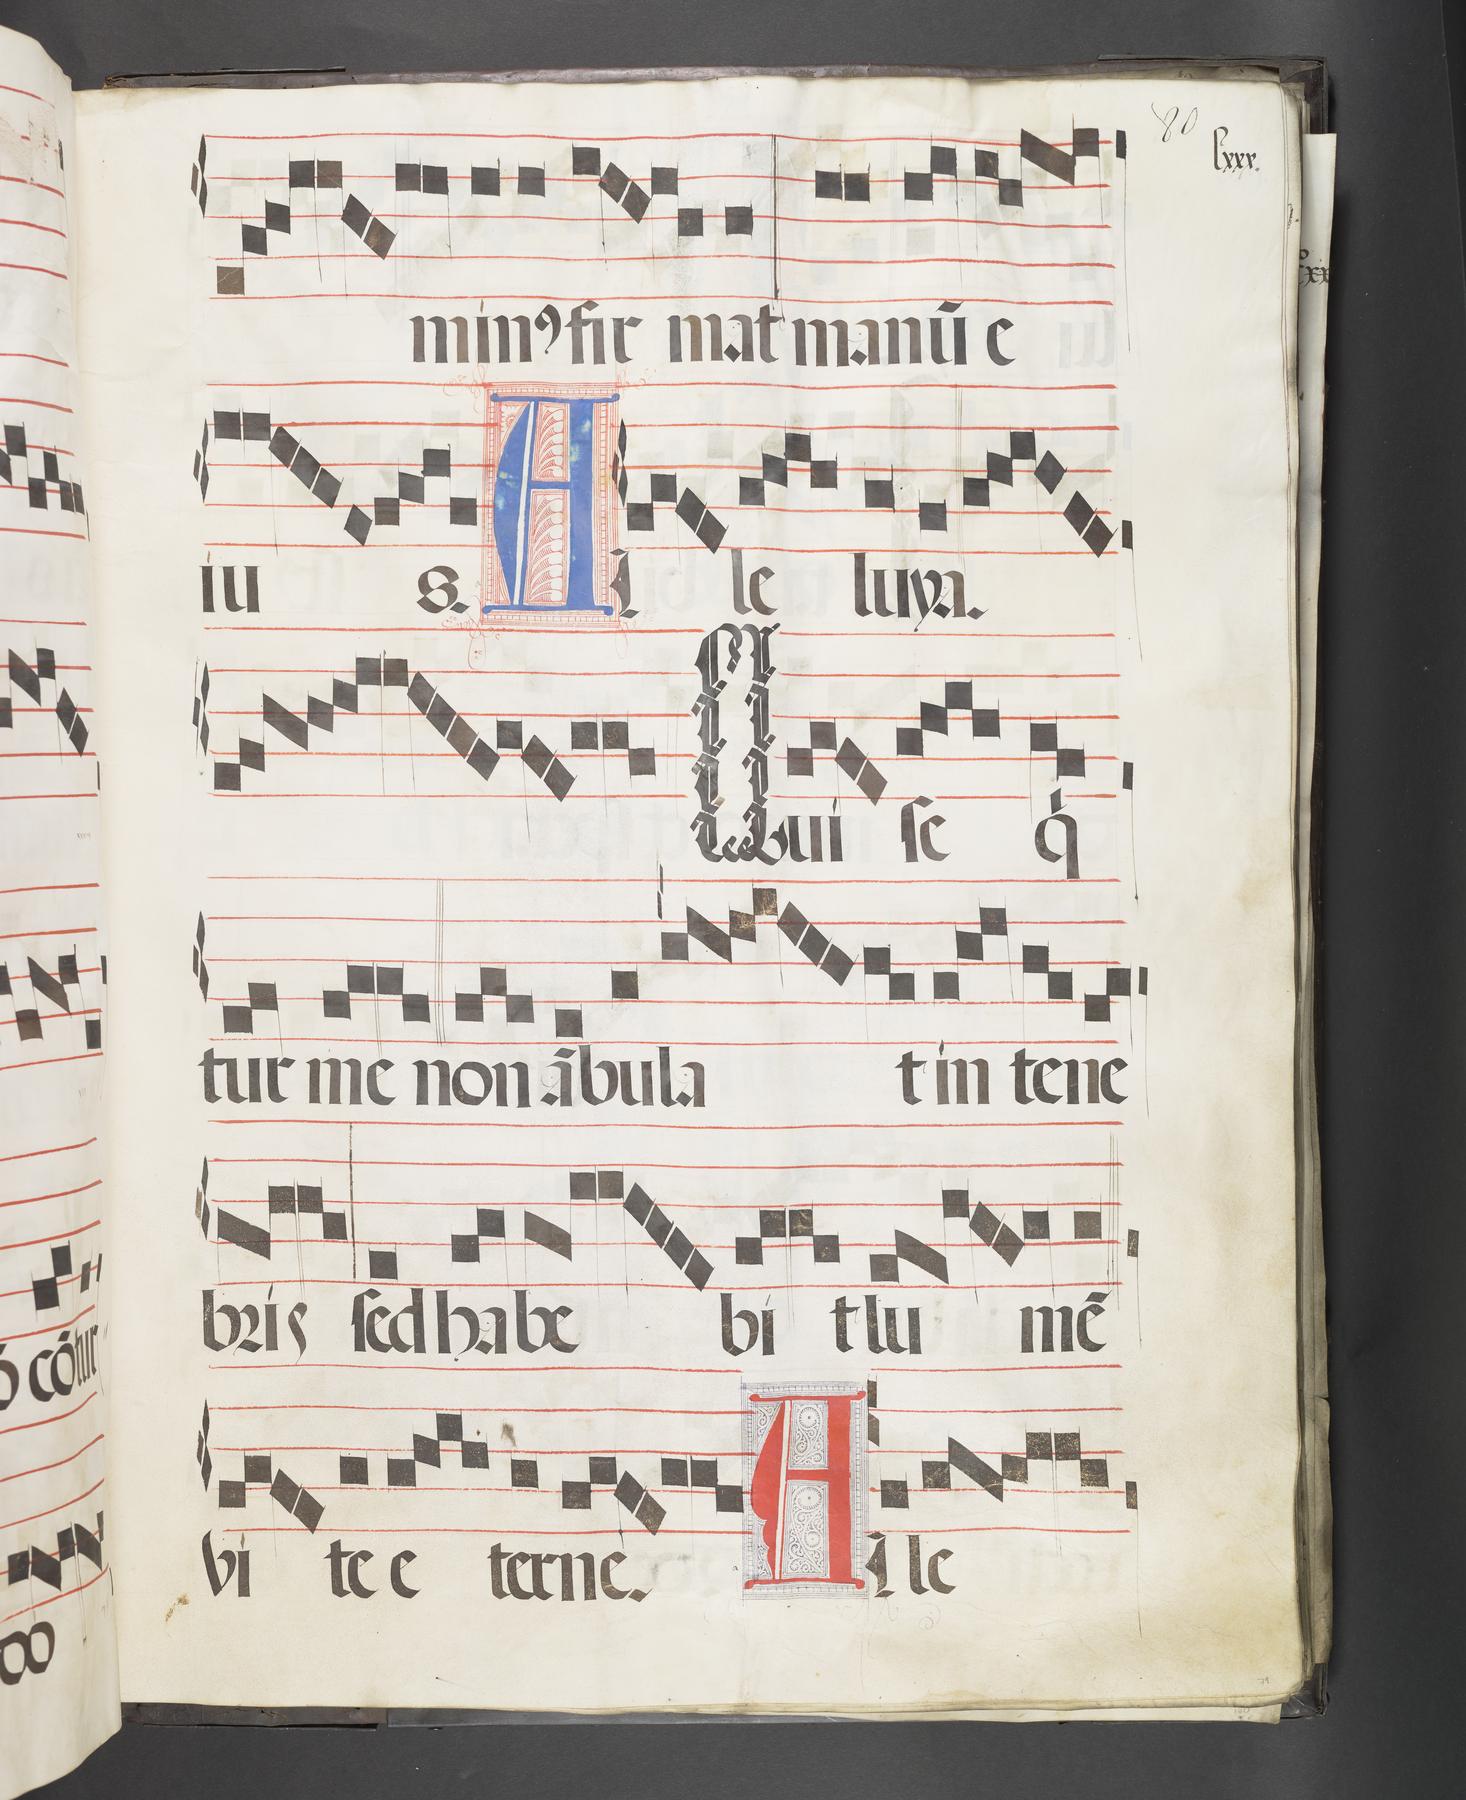 80
lxxx.
minꝯ fir mat manū e
iu s. Al le luya.
Qui se q̇
tur me non ābula t in tene
bris sed habe bi t lu mē
vi te e terne. Al le